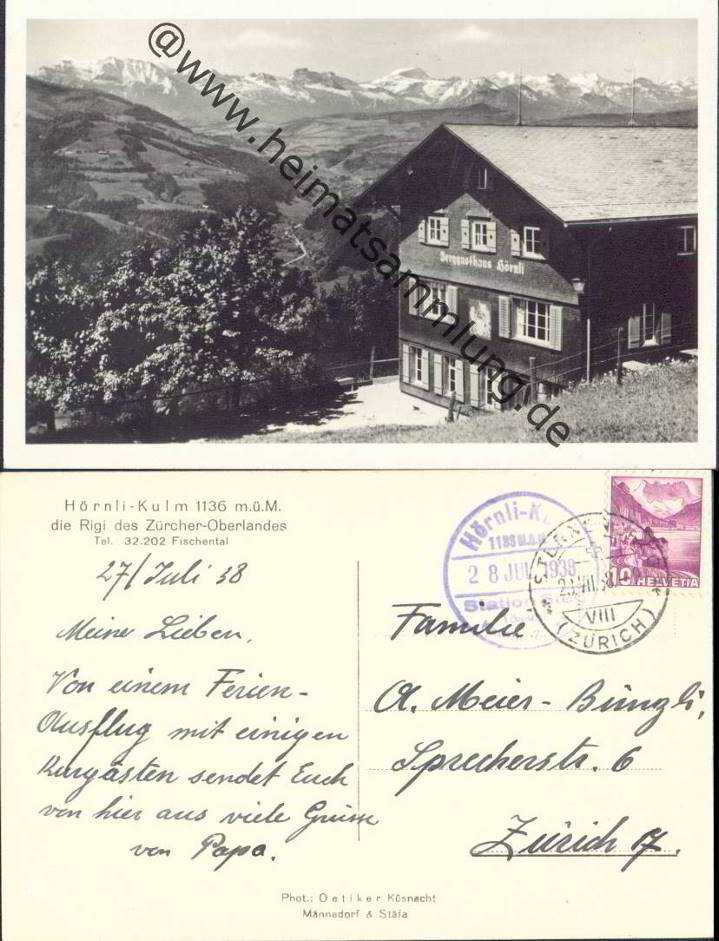 @www.heimatsammlung.de
Berggasthaus Hörnli
Hörnli-Kulm 1136 m.ü.M.
die Rigi des Zürcher-Oberlandes
Tel. 32.202 Fischental
27/Juli 38
Meine Lieben,
Von einem Ferien-
Ausflug mit einigen
Kurgästen sendet Euch
von hier aus viele Grüsse
von Papa.
Hörnli-Ku
1136 M.ü.M
28 JUL 1938
Station
VIII
(ZÜRICH)
10 HELVETIA
Familie
A. Meier-Bünzli,
Sprecherstr. 6
Zürich 7.
Phot.: Oetiker Küsnacht
Männedorf & Stäfa